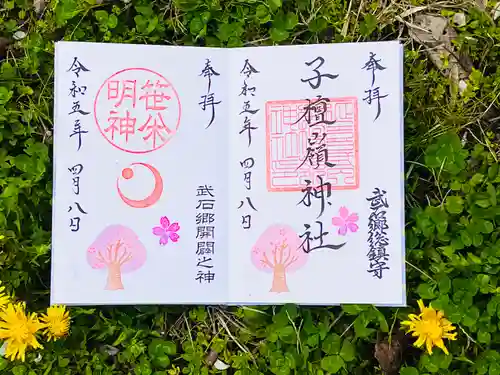 奉拝
子檀嶺神社
武郷総鎮守
令和五年 四月八日
奉拝
笹焼
明神
武石郷開闢之神
令和五年 四月八日